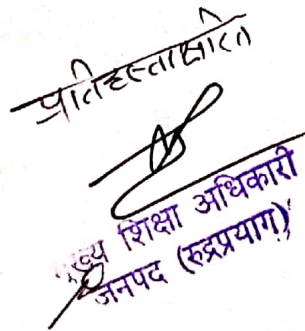 प्रतिहस्ताक्षरित
मुख्य शिक्षा अधिकारी
जनपद (रुद्रप्रयाग)